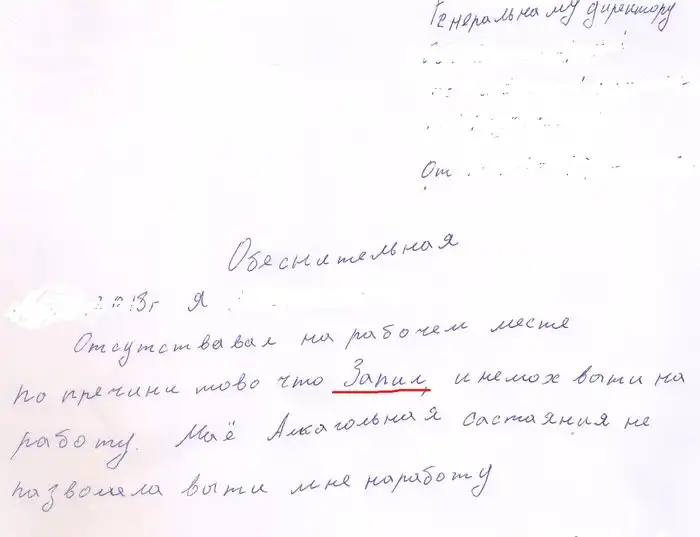 Генеральному директору
От
Обеснительная
2013г Я
Отсутствавал на рабочем месте
по пречини тово что Запил, и немох выти на
работу. Маё Алкагольная састаяния не
пазволяла выти мне наработу